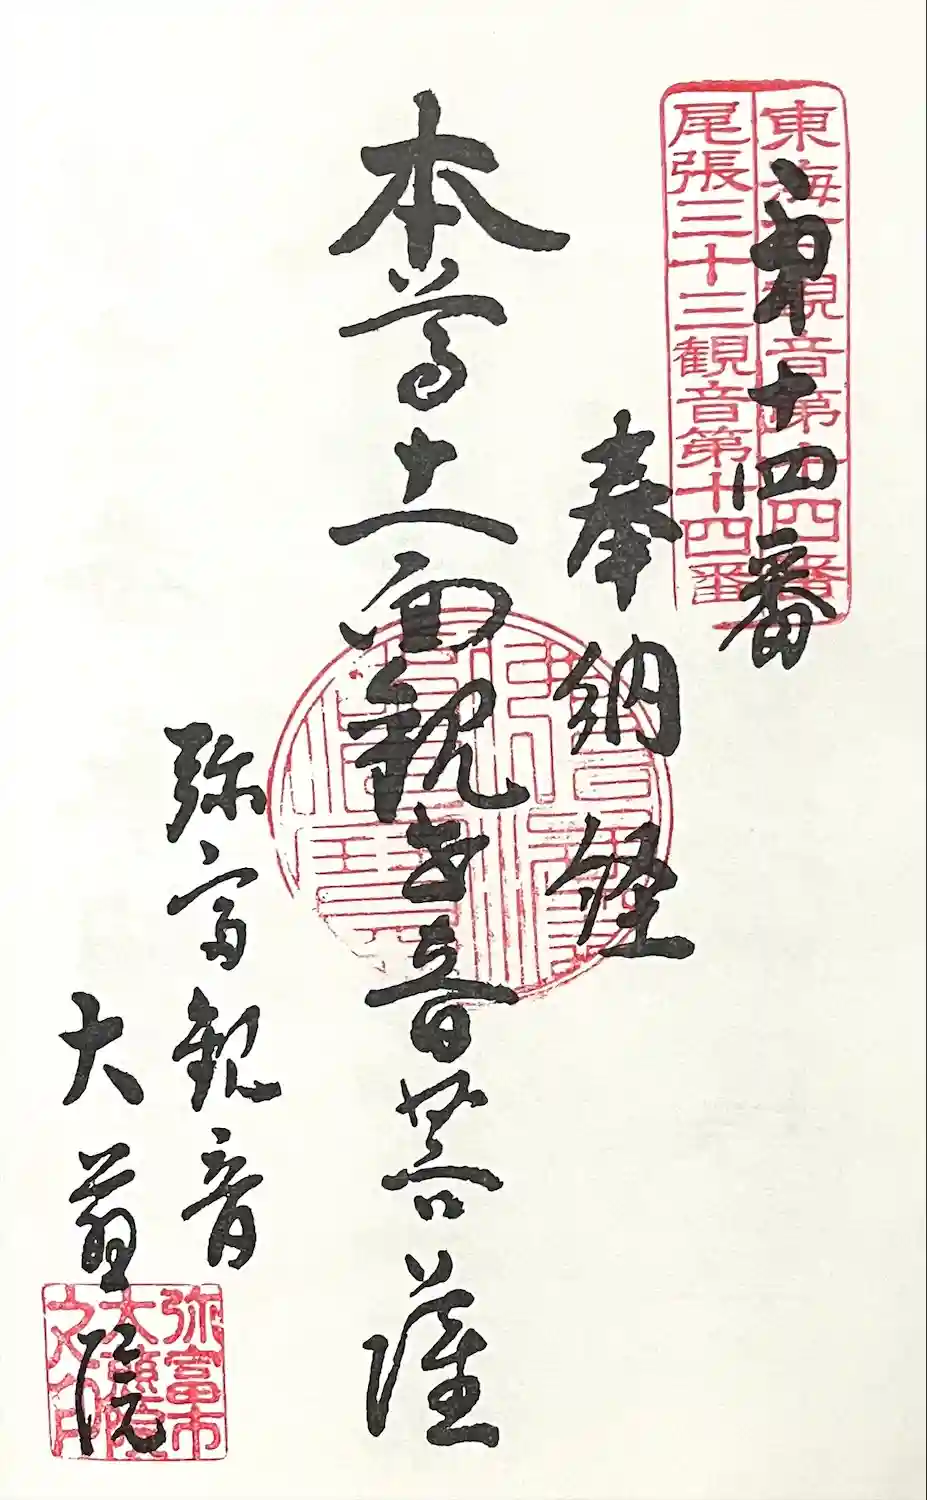 東海百観音第十四番
尾張三十三観音第十四番
第十四番
奉納経
本尊十一面観世音菩薩
弥富観音
大慈院
弥富市
大慈院
之印